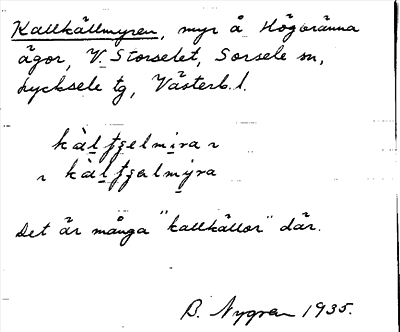 Kallkällmyren, myr å Högbränna
ägor, V. Storselet, Sorsele sn,
Lycksele tg, Västerb. l.
kàlʃʃelmira ~
~ kàlʃʃalmýra
Det är många "kallkällor" där.
B. Nygren 1935.